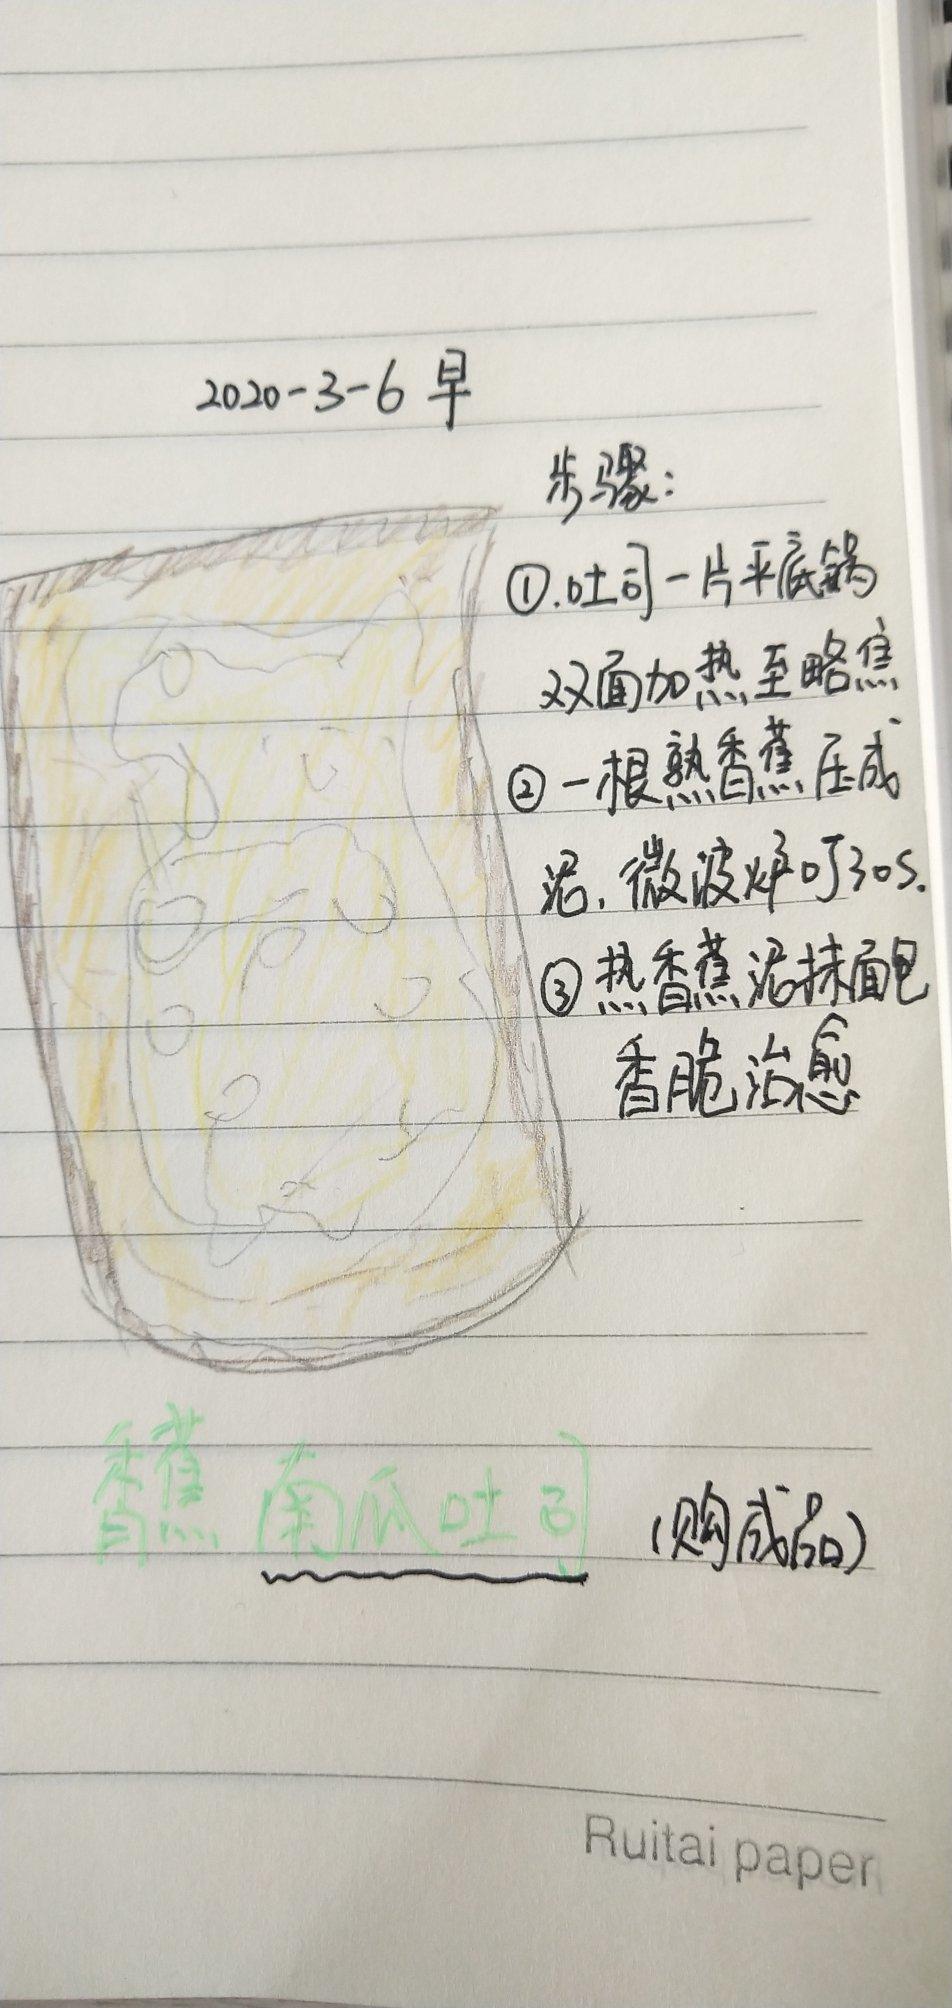 2020-3-6 早
步骤:
①.吐司一片平底锅
双面加热至略焦
②一根熟香蕉压成
泥,微波炉叮30s.
③热香蕉泥抹面包
香脆治愈
香蕉南瓜吐司 (购成品)
Ruitai paper